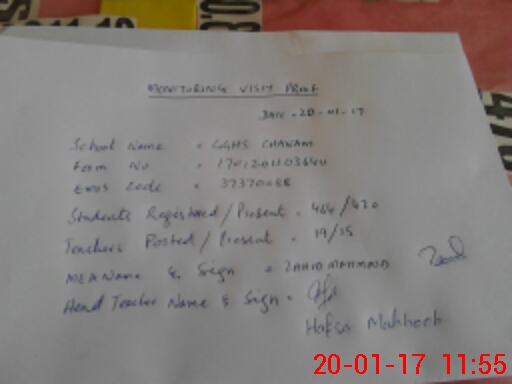 MONITORING VISIT PROOF
DATE = 20-01-17
School Name = GGHS CHANAM
Form No =
EMIS Code = 37370088
Students Registered / Present = 464/420
Teachers Posted / Present = 19/15
MEA Name & Sign = ZAHID MAHMOOD
Head Teacher Name & Sign =
Hafsa
20-01-17 11:55